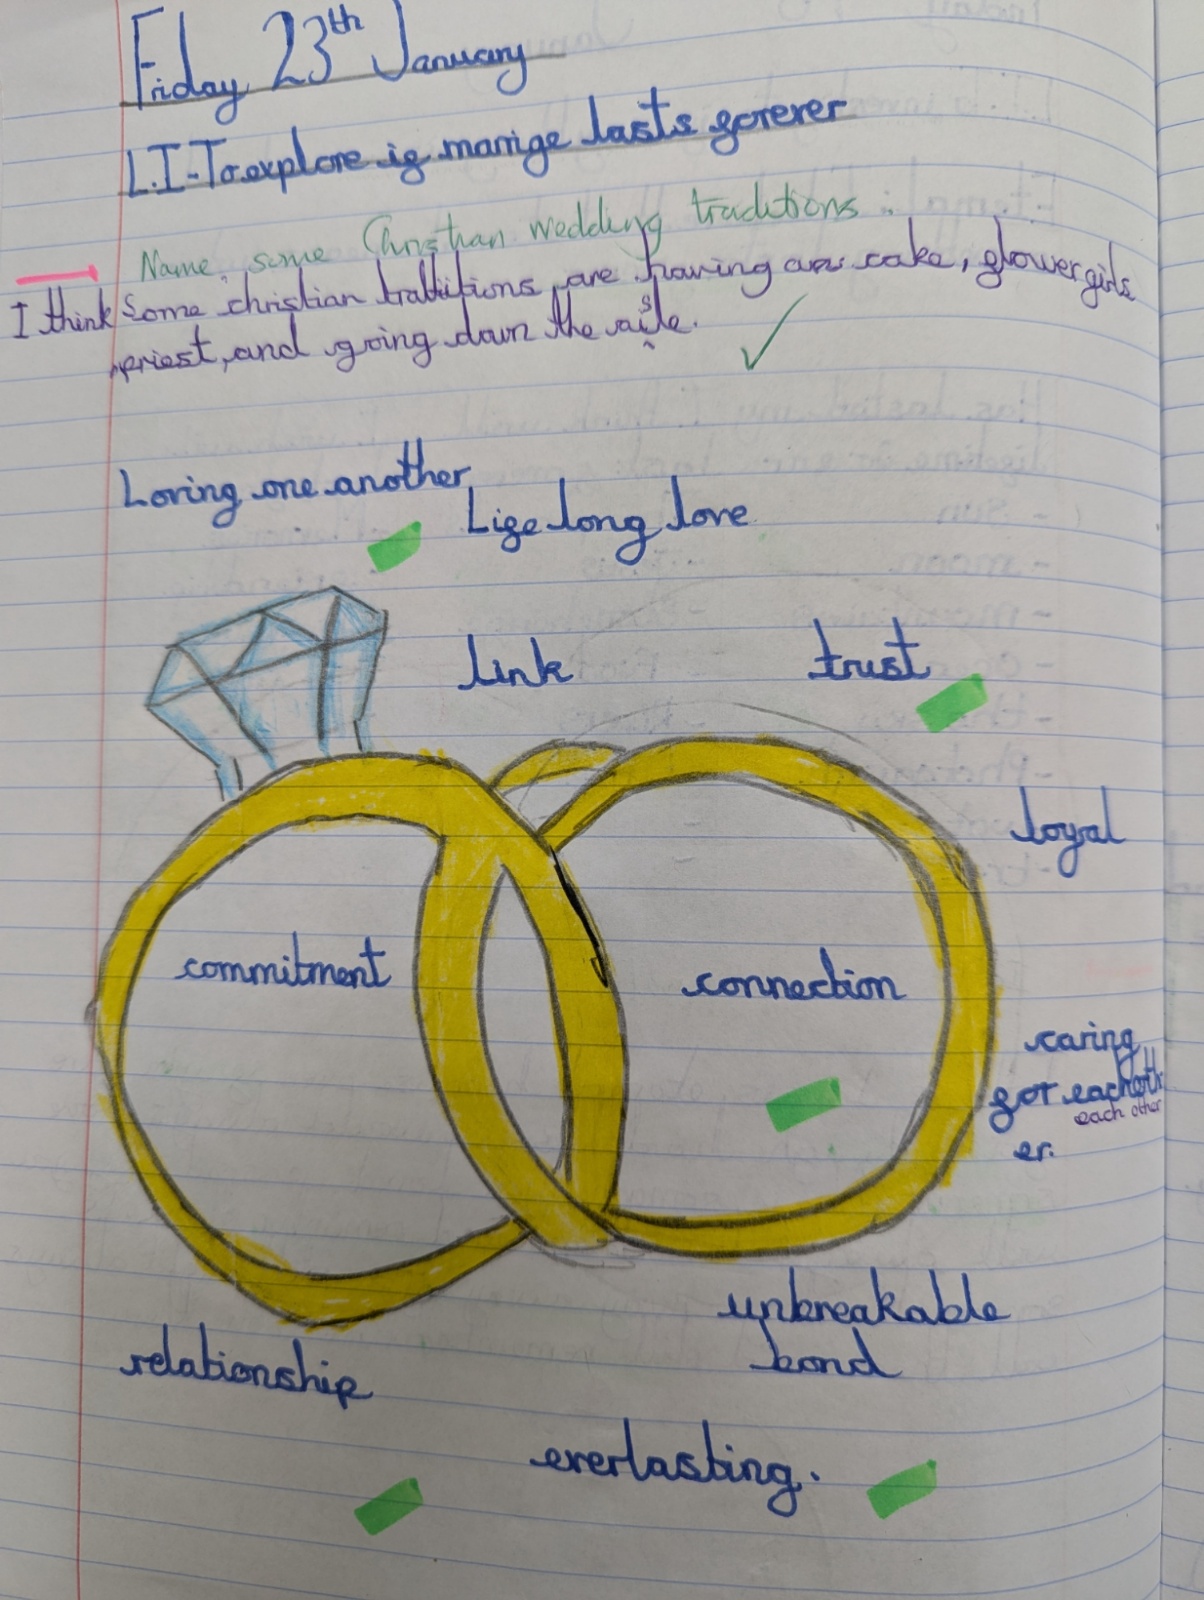 Friday 23th January
L.I-To explore if marrige lasts forever
Name some Christian wedding traditions.
I think some christian traditions are having a cake, flower girls
priest, and going down the aisle.
Loving one another
Life long love
link
trust
loyal
commitment
connection
caring
for each oth
each other
er.
unbreakable
bond
relationship
everlasting.